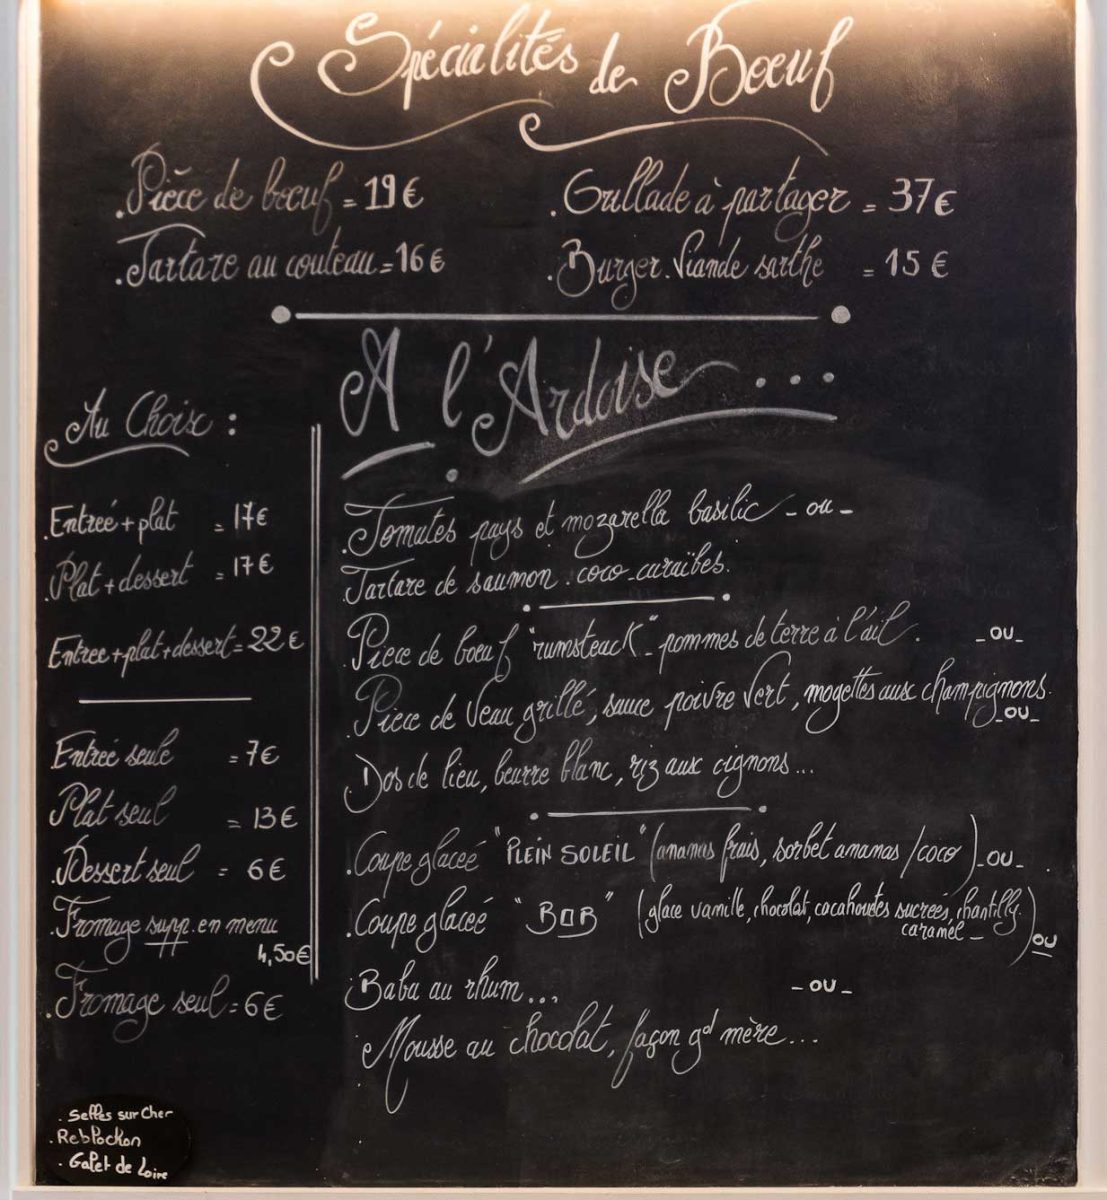 Spécialités de Boeuf
.Pièce de boeuf = 19€
.Grillade à partager = 37€
.Tartare au couteau = 16€
.Burger. Viande sarthe = 15€
A l'Ardoise...
Au Choix :
.Entreé + plat = 17€
.Plat + dessert = 17€
.Entree + plat + dessert = 22€
Entreé seule = 7€
Plat seul = 13€
.Dessert seul = 6€
.Fromage supp. en menu
4,50€
.Fromage seul = 6€
.Tomates pays et mozarella basilic -ou-
.Tartare de saumon. coco-caraïbes.
.Piece de boeuf "rumsteack" - pommes de terre à l'ail. -ou-
.Piece de veau grillé, sauce poivre vert, mogettes aux champignons.
-ou-
.Dos de lieu, beurre blanc, riz aux oignons...
.Coupe glaceé "PLEIN SOLEIL" (ananas frais, sorbet ananas / coco) -ou-
.Coupe glaceé "BOB" (glace vanille, chocolat, cacahouètes sucrées, chantilly.
caramel-) ou
.Baba au rhum... -ou-
.Mousse au chocolat, façon gd mère...
. Selles sur Cher
. Reblochon
. Galet de Loire